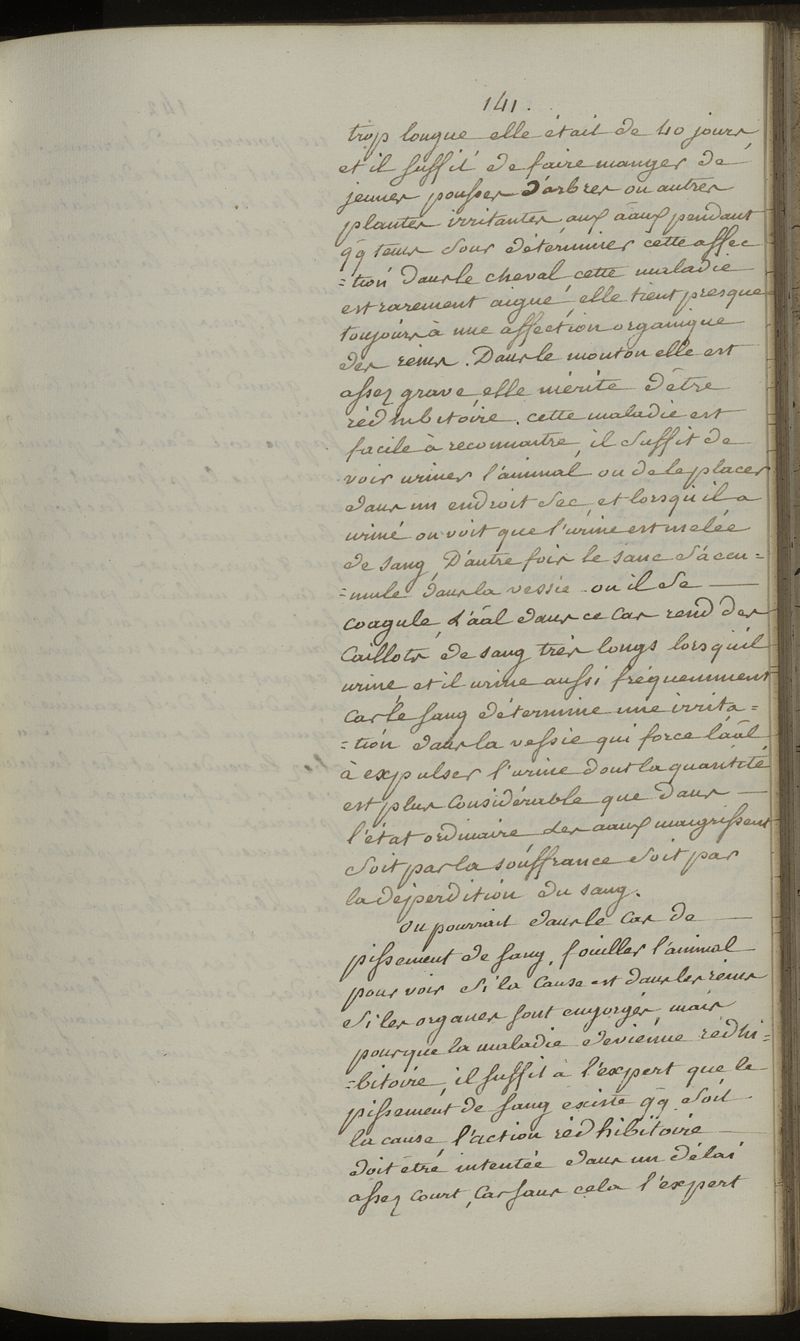 141.
trop longue elle était de 40 jours
et il suffit de faire manger de
jeunes pousses d'arbres ou autres
plantes irritantes aux aãux pendant
qq tems pour déterminer cette affec
=tion dans le cheval cette maladie
est rarement aigue, elle tient presque
toujours à une affection organique
des reins. Dans le mouton elle est
assez grave, elle mérite d'être
rédhibitoire. cette maladie est
facile à reconnaitre, il suffit de
voir uriner l'animal, ou de le placer
dans un endroit sec, et lorsqu'il a
uriné on voit que l'urine est melée
de sang, D'autre fois le sanc s'accu=
=mule dans la vessie ou il se —
coagule, l'aãl dans ce cas rend des
caillots de sang très longs lorsqu'il
urine, et il urine aussi fréquemment
car le sang détermine une irrita=
=tion dans la vessie qui force l'aãl
à expulser l'urine dont la quantité
est plus considérable que dans —
l'état ordinaire les aaux maigrissent
soit par la souffrance soit par
la déperdition du sang.
On pourrait dans le cas de —
pissement de sang, fouiller l'animal
pour voir si la cause est dans les reins
si les organes sont engorgés, mais
pour que la maladie devienne rédhi=
=bitoire, il suffit à l'expert que le
pissement de sang existe qq soit
la cause, l'action rédhibitoire —
doit être intentée dans un délai
assez court, car sans cela l'expert